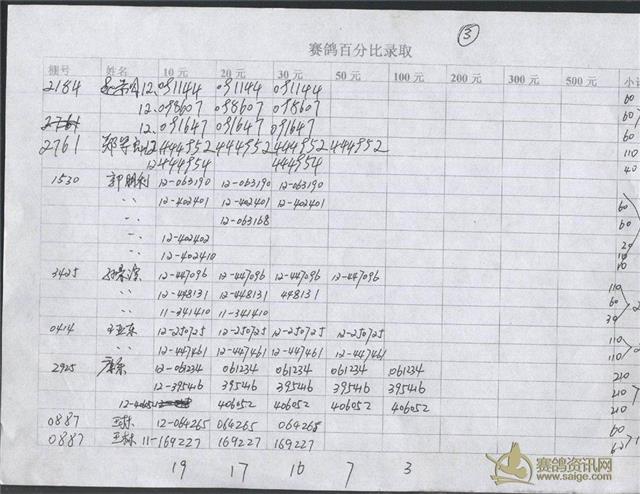 ③
赛鸽百分比录取
棚号 姓名 10元 20元 30元 50元 100元 200元 300元 500元 小计
2184 12.091144 091144 091144 60
12.098607 098607 098607 60
2761 12.091647 091647 091647 60
2761 12444952 444952 444952 444952 110
12444954 444954 40
1530 郭朋利 12-063190 12-063190 12-063190 60
〃 12-402401 12-402401 12-402401 60
12-063168 20
〃 12-402402 10
〃 12-402410 10
3425 12-447096 12-447096 12-447096 12-447096 110
〃 12-448131 12-448131 448131 60
〃 11-341410 11-341410 30
0414 王亚东 12-250725 12-250725 12-250725 12-250725 110
〃 12-447461 12-447461 12-447461 12-447461 110
2925 12-061234 061234 061234 061234 061234 210
12-395416 395416 395416 395416 395416 210
406052 406052 406052 406052 210
0887 12-064265 064265 064265 60
0887 11-169227 169227 169227 60
19 17 16 7 3
赛鸽资讯网
www.saige.com